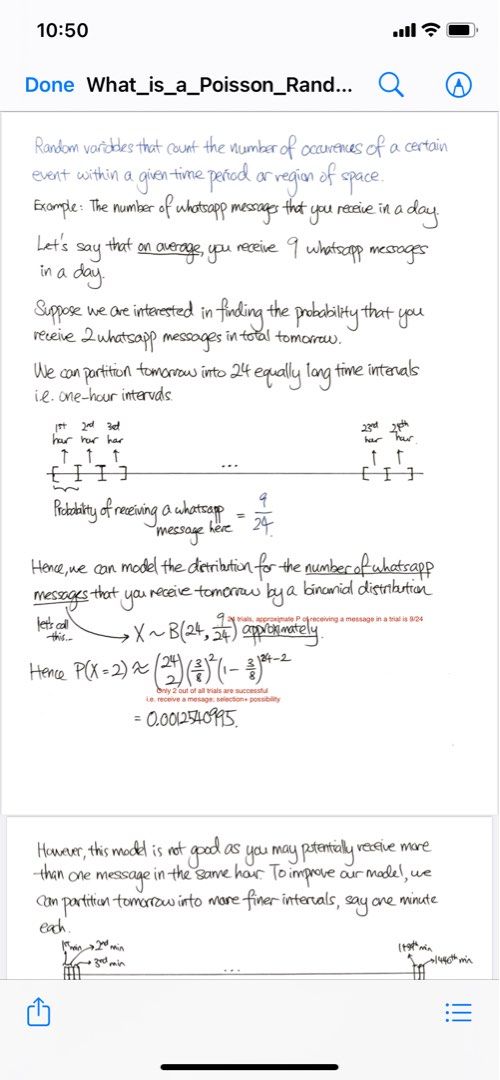 10:50
Done What_is_a_Poisson_Rand...
Random variables that count the number of occurrences of a certain
event within a given time period or region of space.
Example: The number of whatsapp messages that you receive in a day.
Let's say that on average, you receive 9 whatsapp messages
in a day.
Suppose we are interested in finding the probability that you
receive 2 whatsapp messages in total tomorrow.
We can partition tomorrow into 24 equally long time intervals
i.e. one-hour intervals.
1st 2nd 3rd 23rd 24th
hour hour hour hour hour
...
Probability of receiving a whatsapp message here = 9/24
Hence, we can model the distribution for the number of whatsapp
messages that you receive tomorrow by a binomial distribution
let's call this...
24 trials, approximate P of receiving a message in a trial is 9/24
X ~ B(24, 9/24) approximately.
Hence P(X=2) ≈ (24 2)(3/8)²(1 - 3/8)²⁴⁻²
Only 2 out of all trials are successful
i.e. receive a mesage; selection+ possibility
= 0.0012540995.
However, this model is not good as you may potentially receive more
than one message in the same hour. To improve our model, we
can partition tomorrow into more finer intervals, say one minute
each.
1st min 2nd min 3rd min
...
1440th min